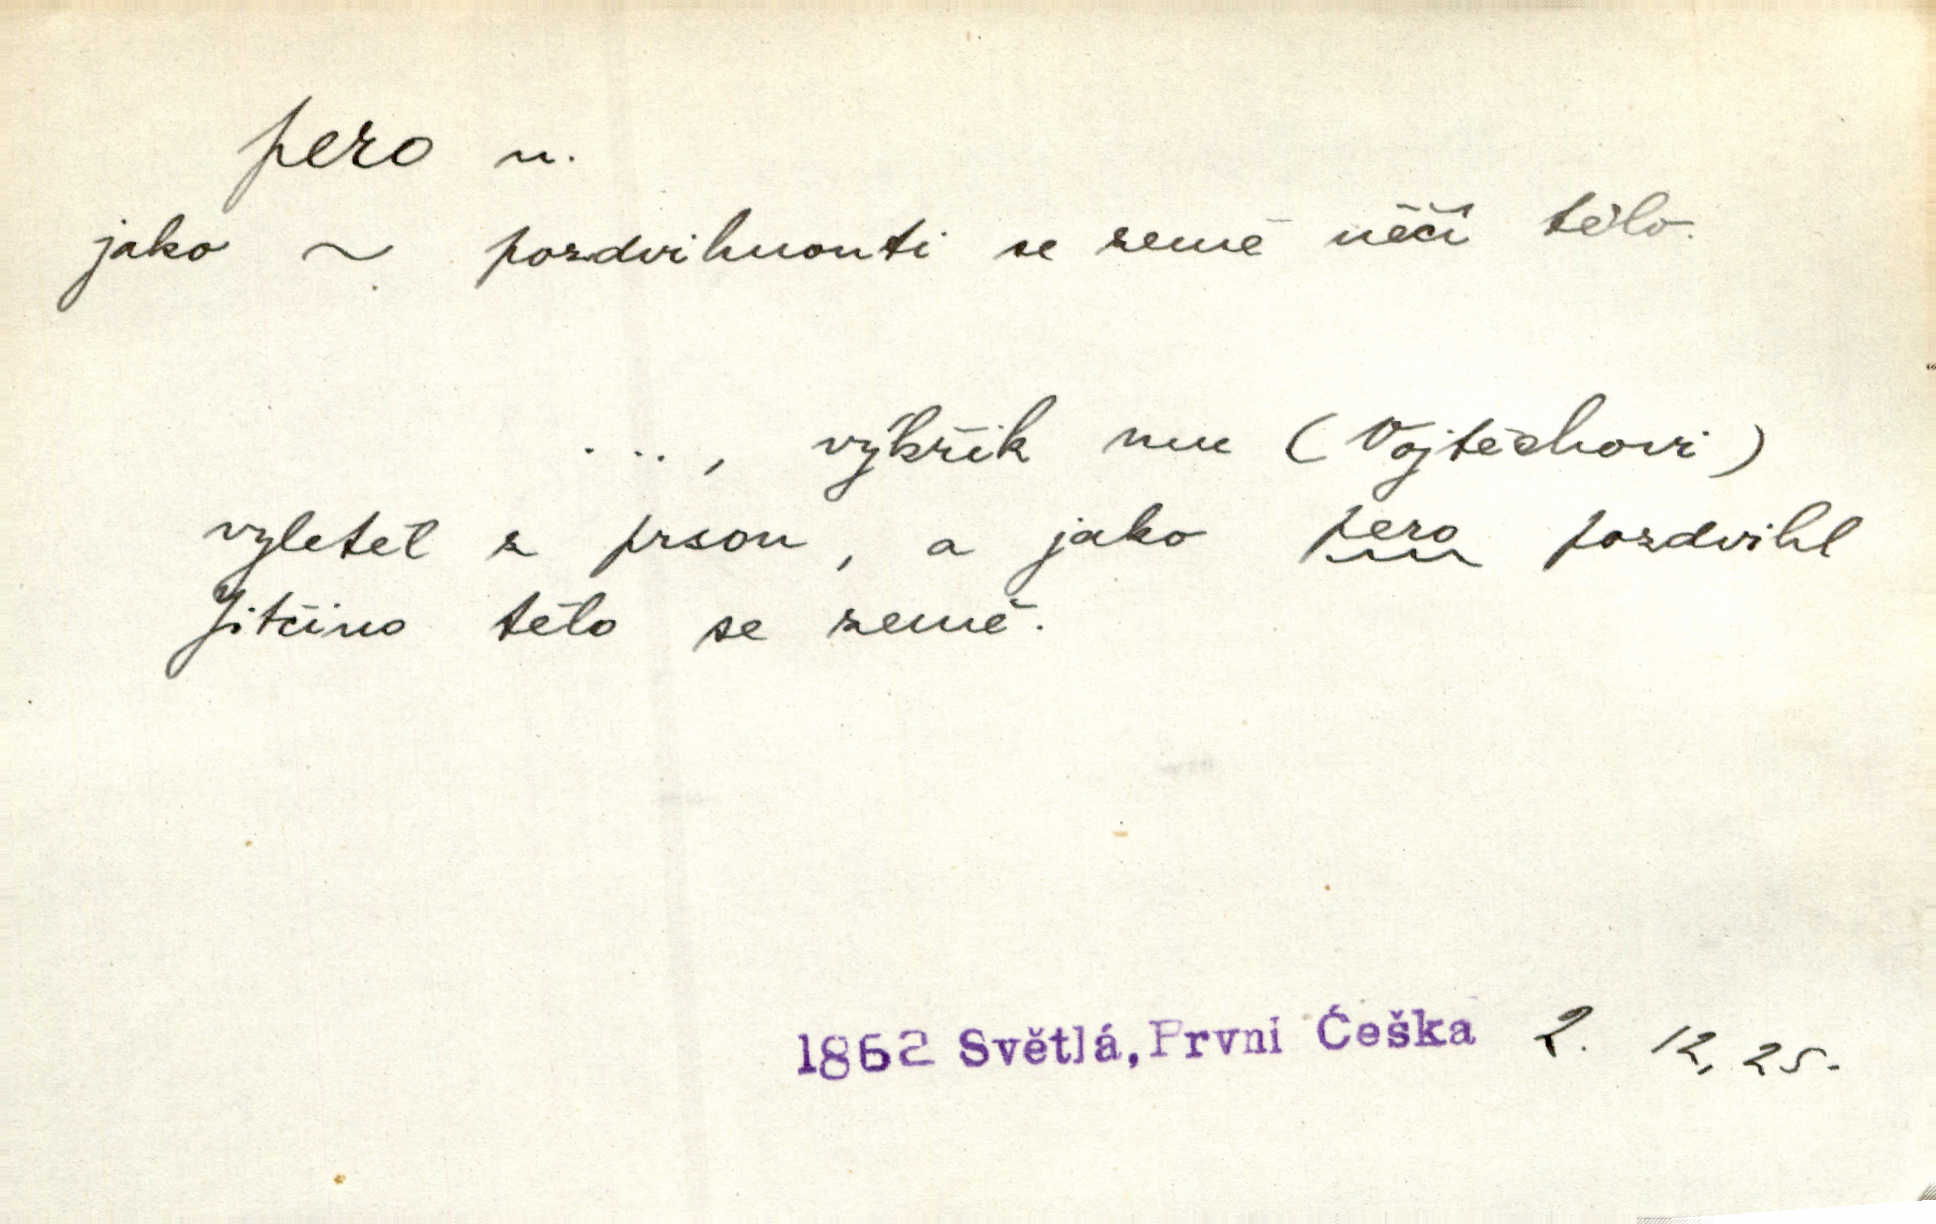 pero n.
jako ~ pozdvihnouti se země něčí tělo.
..., výkřik mu (Vojtěchovi)
vyletěl z prsou, a jako pero pozdvihl
Jitčino tělo se země.
1862 Světlá, První Češka 2. 12, 25.